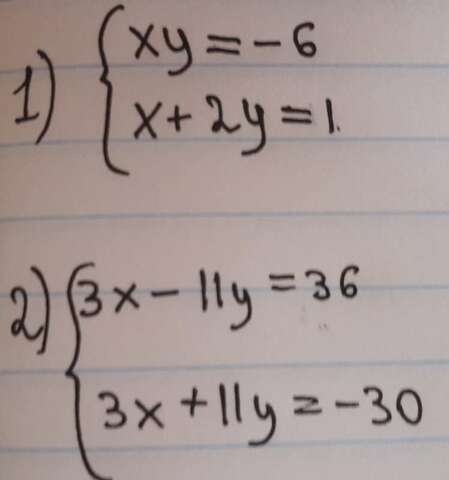 1) { xy = -6
x + 2y = 1.
2) { 3x - 11y = 36
3x + 11y = -30